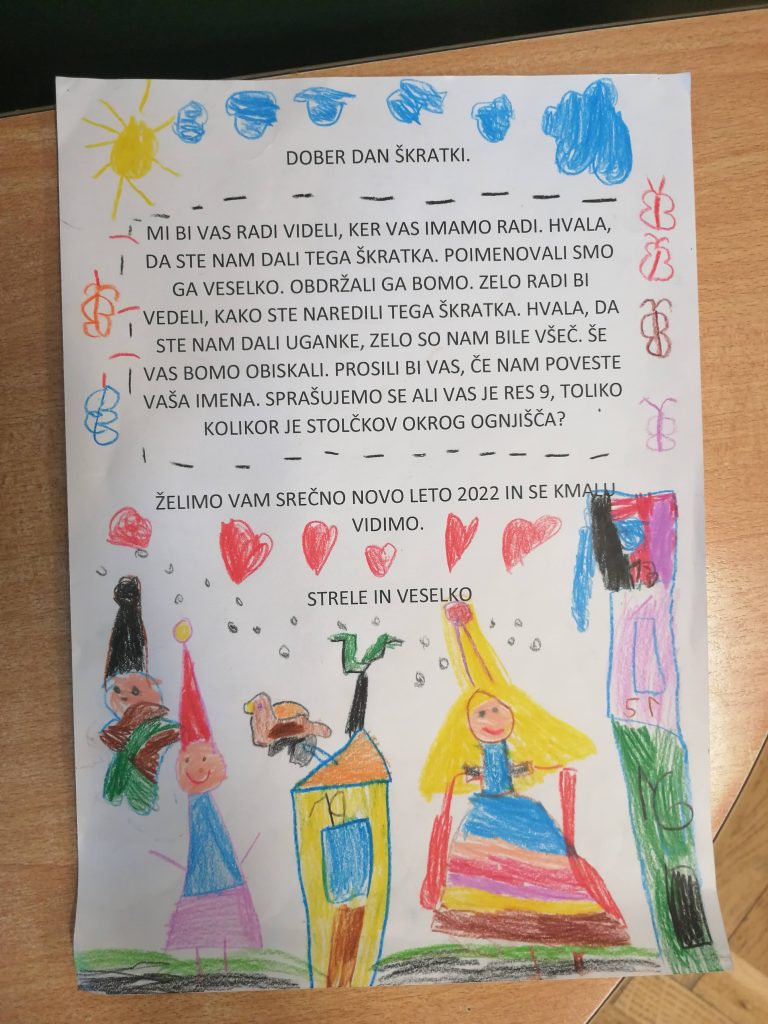 DOBER DAN ŠKRATKI.
MI BI VAS RADI VIDELI, KER VAS IMAMO RADI. HVALA,
DA STE NAM DALI TEGA ŠKRATKA. POIMENOVALI SMO
GA VESELKO. OBDRŽALI GA BOMO. ZELO RADI BI
VEDELI, KAKO STE NAREDILI TEGA ŠKRATKA. HVALA, DA
STE NAM DALI UGANKE, ZELO SO NAM BILE VŠEČ. ŠE
VAS BOMO OBISKALI. PROSILI BI VAS, ČE NAM POVESTE
VAŠA IMENA. SPRAŠUJEMO SE ALI VAS JE RES 9, TOLIKO
KOLIKOR JE STOLČKOV OKROG OGNJIŠČA?
ŽELIMO VAM SREČNO NOVO LETO 2022 IN SE KMALU
VIDIMO.
STRELE IN VESELKO